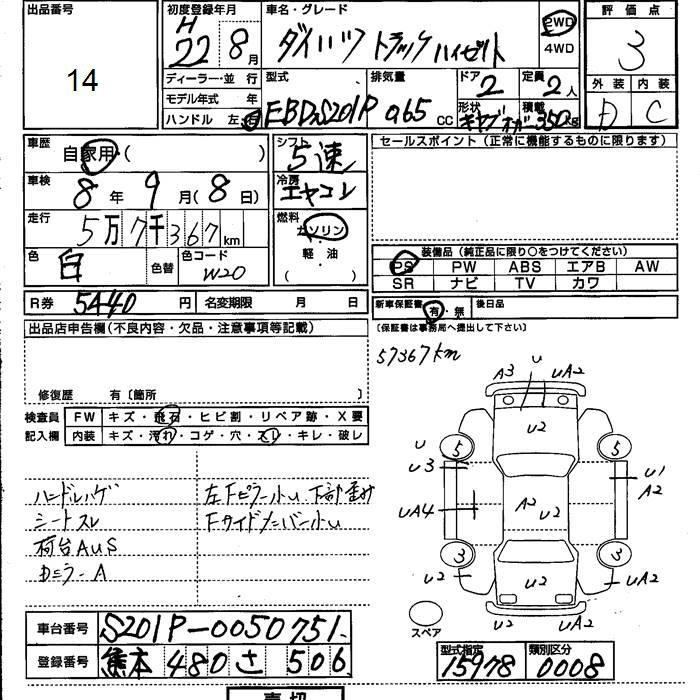 出品番号
14
初度登録年月
H
22 8月
車名・グレード
ダイハツ トラックハイゼット
2WD
4WD
評価点
3
ディーラー・並行
モデル年式 年
ハンドル 左・右
型式
EBD-S201P
排気量
065 CC
ドア
2
定員
2人
形状
積載
350kg
外装 内装
D C
車歴
自家用・( )
シフト
5速
セールスポイント (正常に機能するものに限ります)
車検
8年 9月(8日)
冷房
エヤコン
走行
5万7千367km
燃料
ガソリン
軽・油
( )
色
白
色替
色コード
W20
装備品 (純正品に限り○をつけてください)
PS PW ABS エアB AW
SR ナビ TV カワ
R券 5440円 名変期限 月 日
新車保証書 有・無 後日品
(保証書は事務局へ提出して下さい)
出品店申告欄(不良内容・欠品・注意事項等記載)
57367km
修復歴 有〔箇所 〕
検査員 FW キズ・飛石・ヒビ割・リペア跡・X要
記入欄 内装 キズ・汚れ・コゲ・穴・スレ・キレ・破レ
ハンドルハゲ
シートスレ
荷台AUS
左Fピラー小u 下部歪み
Fサイドメンバー小u
A3 U UA2
U2
U 5 5
U3 U1
A2
UA4 A2 U2
3 3
U2 U2 UA2
U2 UA2
スペア
車台番号 S201P-0050751
登録番号 熊本 480 さ 506
型式指定 15978
類別区分 0008